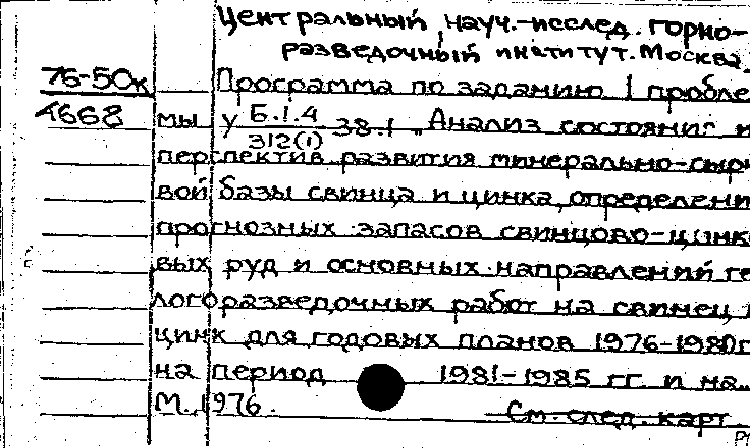 Центральный науч.-исслед. горно-
разведочный институт. Москва.
76-50к Программа по заданию 1 пробле
4668 мы у Б.1.4 / 312(1) 38.1 „Анализ состояния и
перспектив развития минерально-сырь
вой базы свинца и цинка, определени
прогнозных запасов свинцово-цинко
вых руд и основных направлений ге
логоразведочных работ на свинец,
цинк для годовых планов 1976-1980г
на период 1981-1985 гг. и на..
М., 1976. См. след. карт.